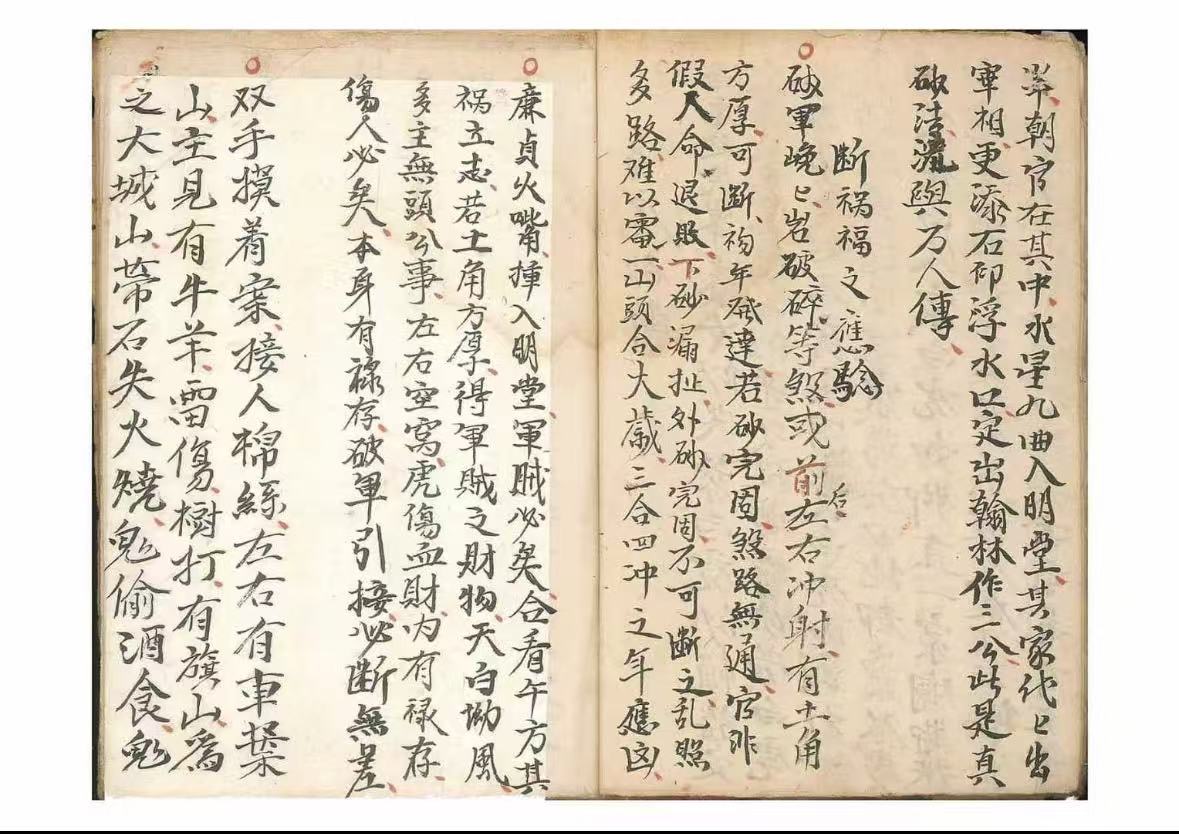 举朝官在其中水星九曲入明堂其家代〻出
宰相更添石印浮水口定出翰林作三公此是真
砂法流與万人傳
断禍福之應驗
砂軍巉〻岩破碎等煞或前后左右冲射有土角
方厚可断初年發達若砂完固煞路無通官非
假人命退敗下砂漏扯外砂完固不可断之乱照
多路难以審一山頭合大歲三合四冲之年應凶
廉貞火嘴角揷入明堂軍賊必矣合看午方其
祸立志若土角方厚得軍賊之財物天白坳風
多主無頭公事左右空窝虎傷血財内有禄存
傷人必矣本身有禄存破軍引接必断無差
双手摸着案接人棉絲左右有車葉
山主見有牛羊雷傷樹打有旗山爲
之大城山带石失火燒鬼偷酒食鬼